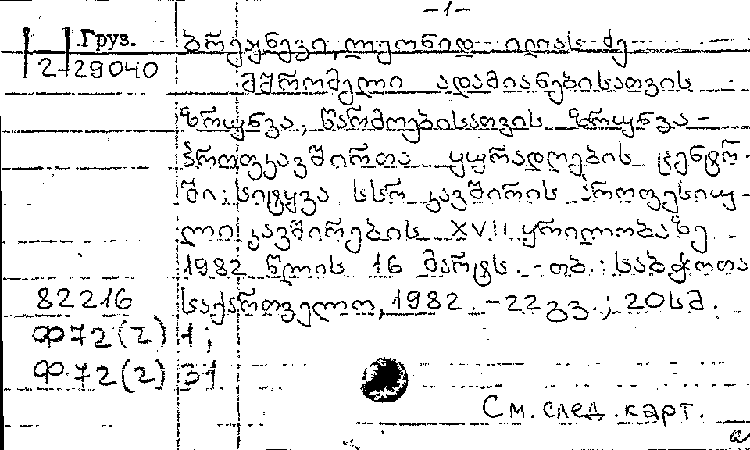 -1-
Груз. ბრეჟნევი, ლეონიდ ილიას ძე
2-29040
მშრომელი ადამიანებისათვის
ზრუნვა, წარმოებისათვის ზრუნვა -
პროფკავშირთა ყურადღების ცენტრ-
ში: სიტყვა სსრ კავშირის პროფესიუ-
ლი კავშირების XVII ყრილობაზე
1982 წლის 16 მარტს. - თბ.: საბჭოთა
82216 საქართველო, 1982. - 22 გვ.; 20 სმ.
Ф72(2)1;
Ф72(2)31
См. след. карт.